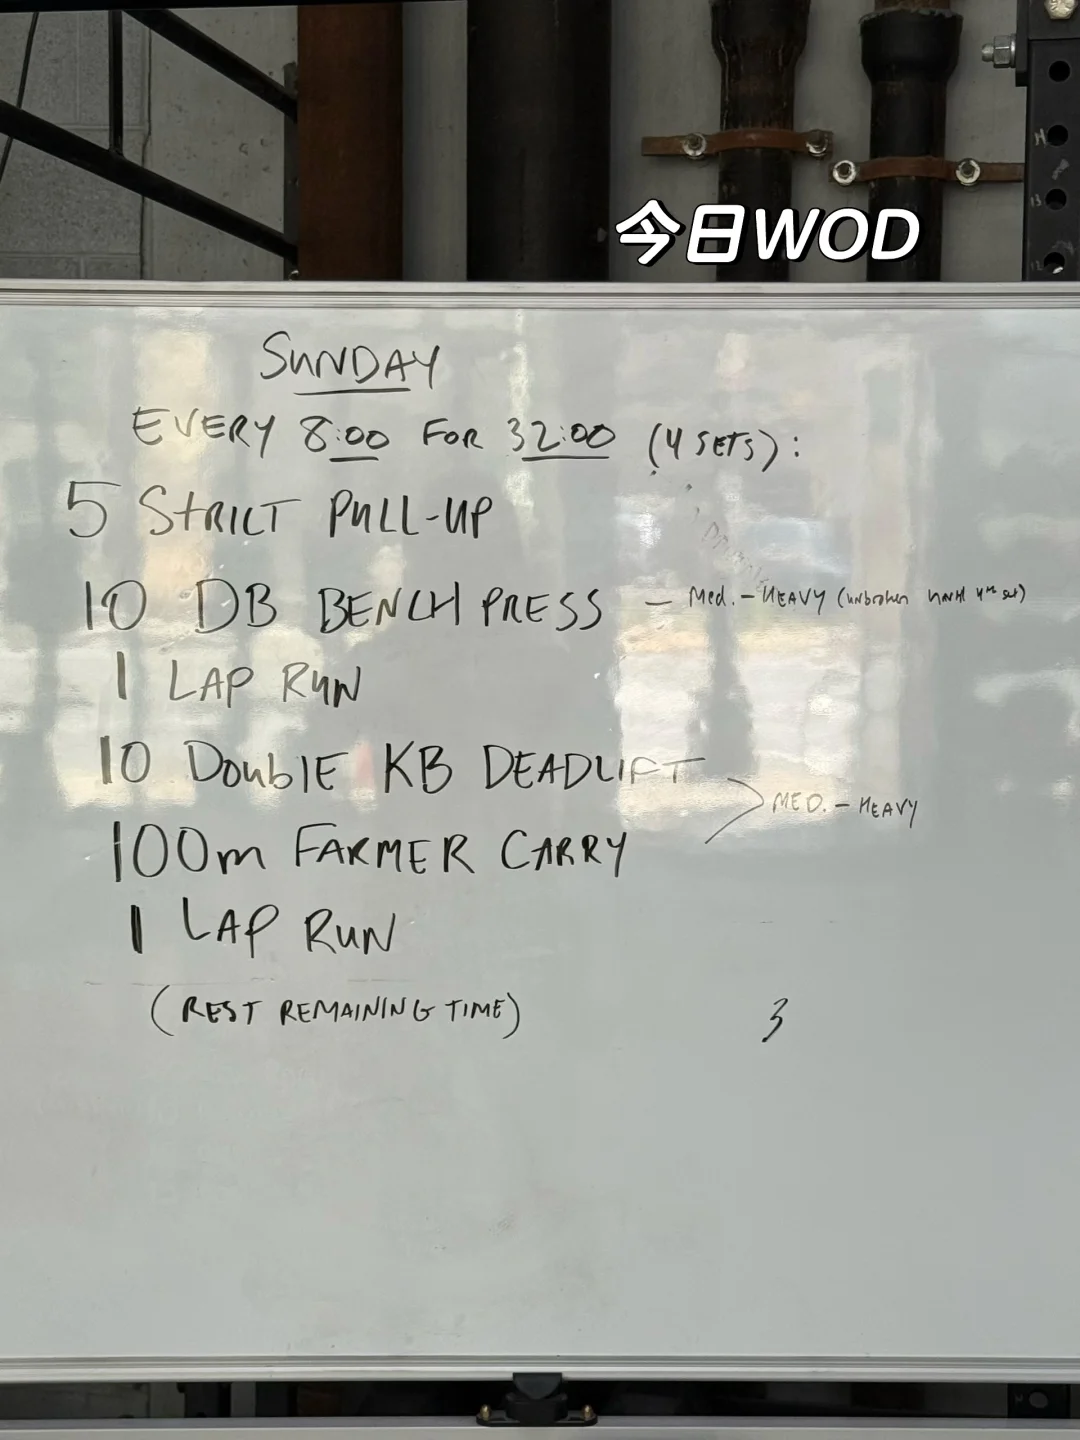 今日WOD
SUNDAY
EVERY 8:00 FOR 32:00 (4 SETS):
5 STRICT PULL-UP
10 DB BENCH PRESS — MED. - HEAVY (unbroken until 4th set)
1 LAP RUN
10 DoublE KB DEADLIFT
MED. - HEAVY
100m FARMER CARRY
1 LAP RUN
(REST REMAINING TIME)
3